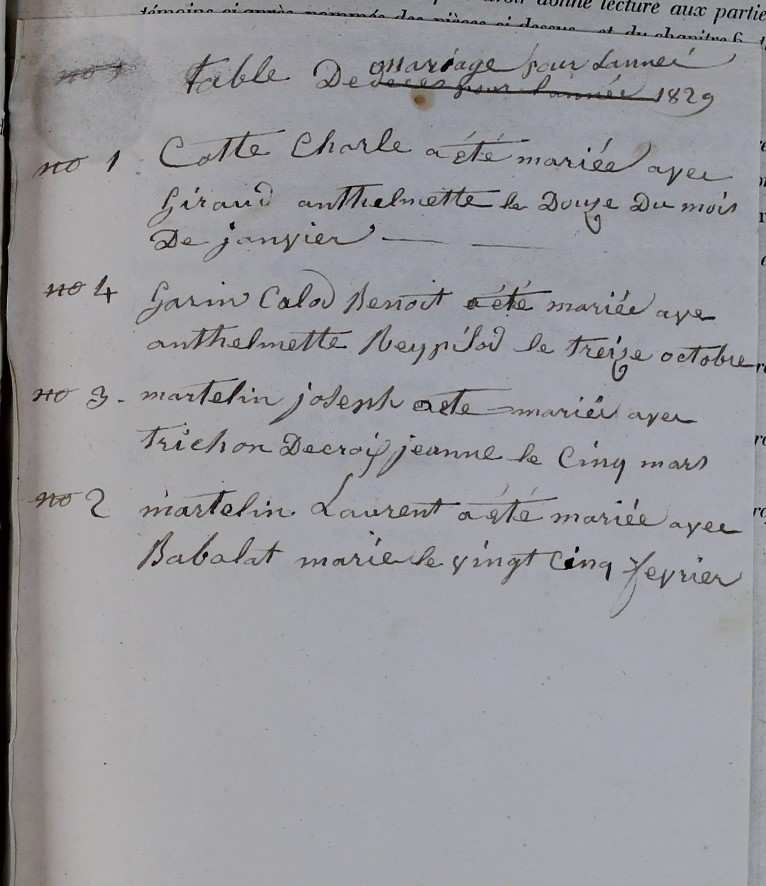 donné lecture aux partie
témoins ci-après nommés des pièces ci-dessus, et du chapitre 6
no 1
mariage pour Lanneé
Table De deces pour l'année 1829
no 1 Cotte Charle a été mariée avec
Giraud anthelmette le Douze Du mois
De janvier
no 4 Garin Calod Benoit a été mariée ave
anthelmette Reypilod le treize octobre
no 3 - martelin joseph a ete mariée avec
trichon Decroix jeanne le Cinq mars
no 2 martelin Laurent a été mariée avec
Babolat marie le vingt Cinq fevrier